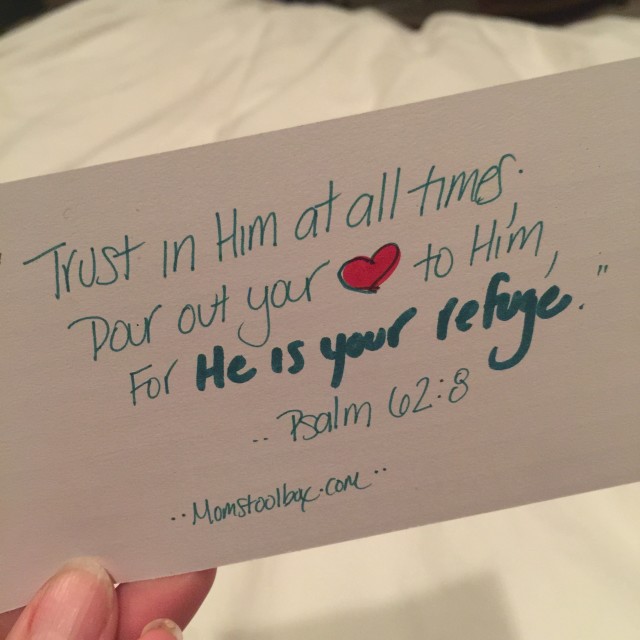 " Trust in Him at all times.
Pour out your ❤ to Him,
For He is your refuge."
-- Psalm 62:8
-- Momstoolbox.com --